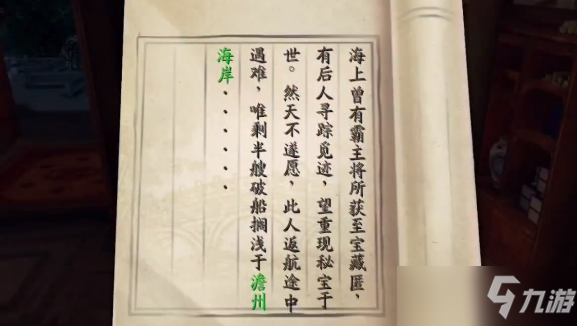 海上曾有霸主将所获至宝藏匿，
有后人寻踪觅迹，望重现秘宝于
世。然天不遂愿，此人返航途中
遇难，唯剩半艘破船搁浅于澹州
海岸．．．．．．
九游